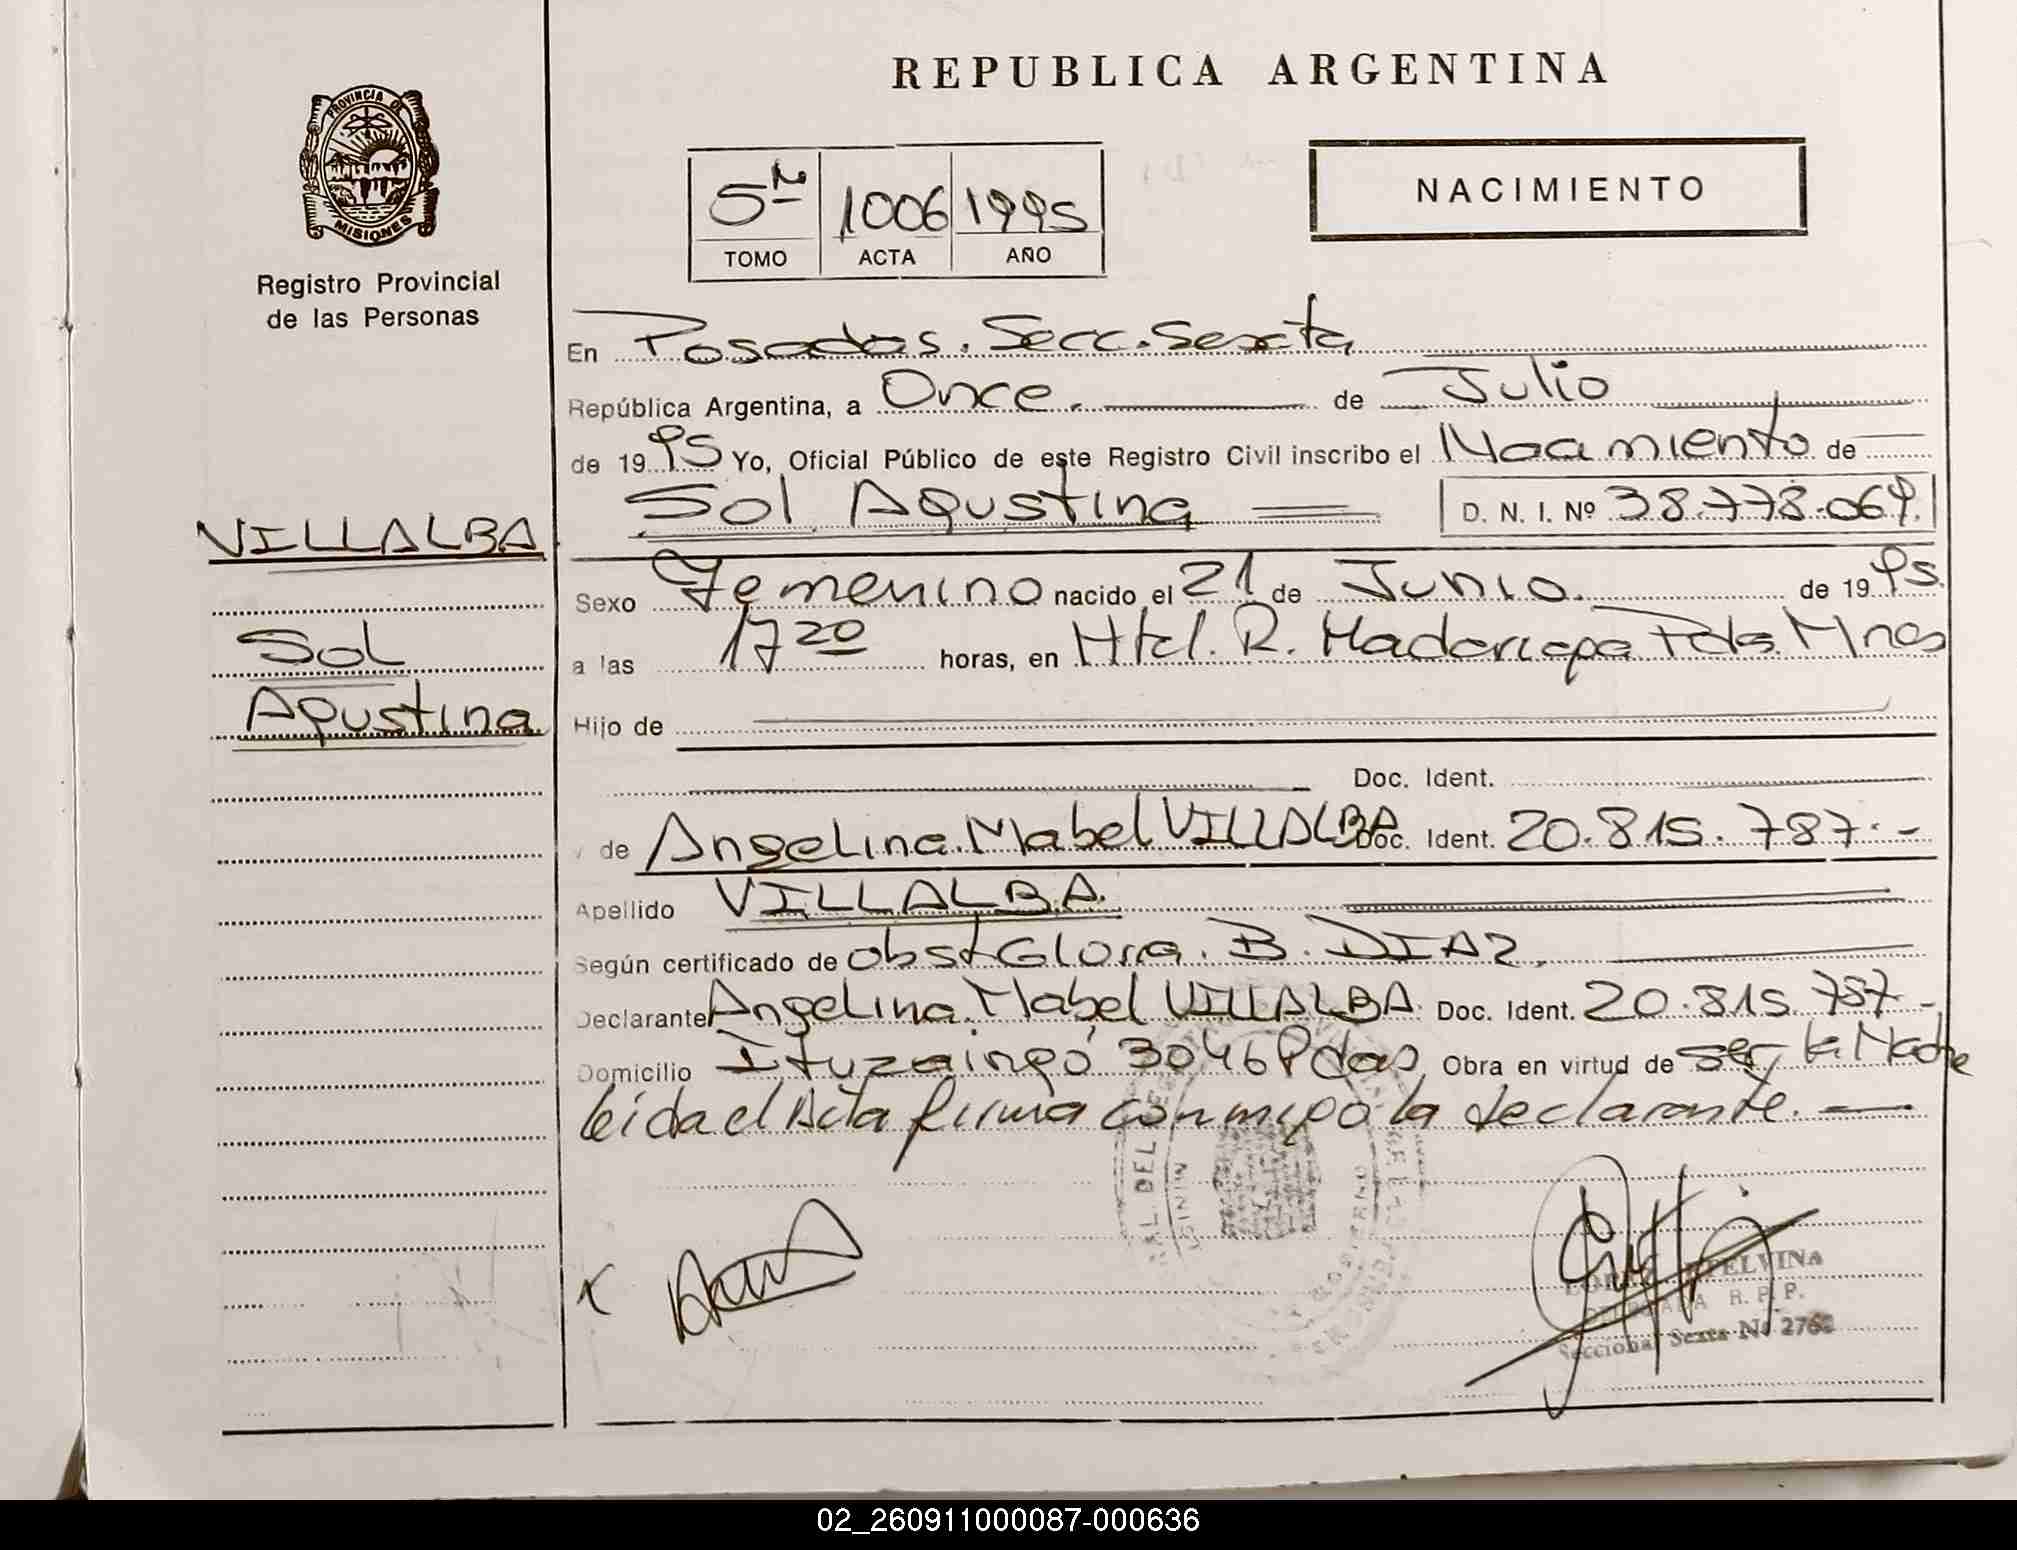 REPUBLICA ARGENTINA
PROVINCIA DE
MISIONES
Registro Provincial
de las Personas
5º 1006 1995
TOMO ACTA AÑO
NACIMIENTO
En Posadas. Secc. Sexta
República Argentina, a Once. de Julio
de 1995 Yo, Oficial Público de este Registro Civil inscribo el Nacimiento de
Sol Agustina D. N. I. Nº 38.778.069.
VILLALBA
Sol
Agustina
Sexo Femenino nacido el 21 de Junio. de 1995.
a las 17 20 horas, en Htcl. R. Madariaga Pdas. Mnes
Hijo de
Doc. Ident.
y de Angelina Mabel VILLALBA Doc. Ident. 20.815.787.-
Apellido VILLALBA.
Según certificado de obst Gloria. B. DIAZ.
Declarante Angelina Mabel VILLALBA Doc. Ident. 20.815.787.-
Domicilio Ituzaingó 3046 Pdas Obra en virtud de ser la Madre
leída el Acta firma conmigo la declarante.
ELVINA
R. P. P.
Seccional Sexta Nº
02_260911000087-000636